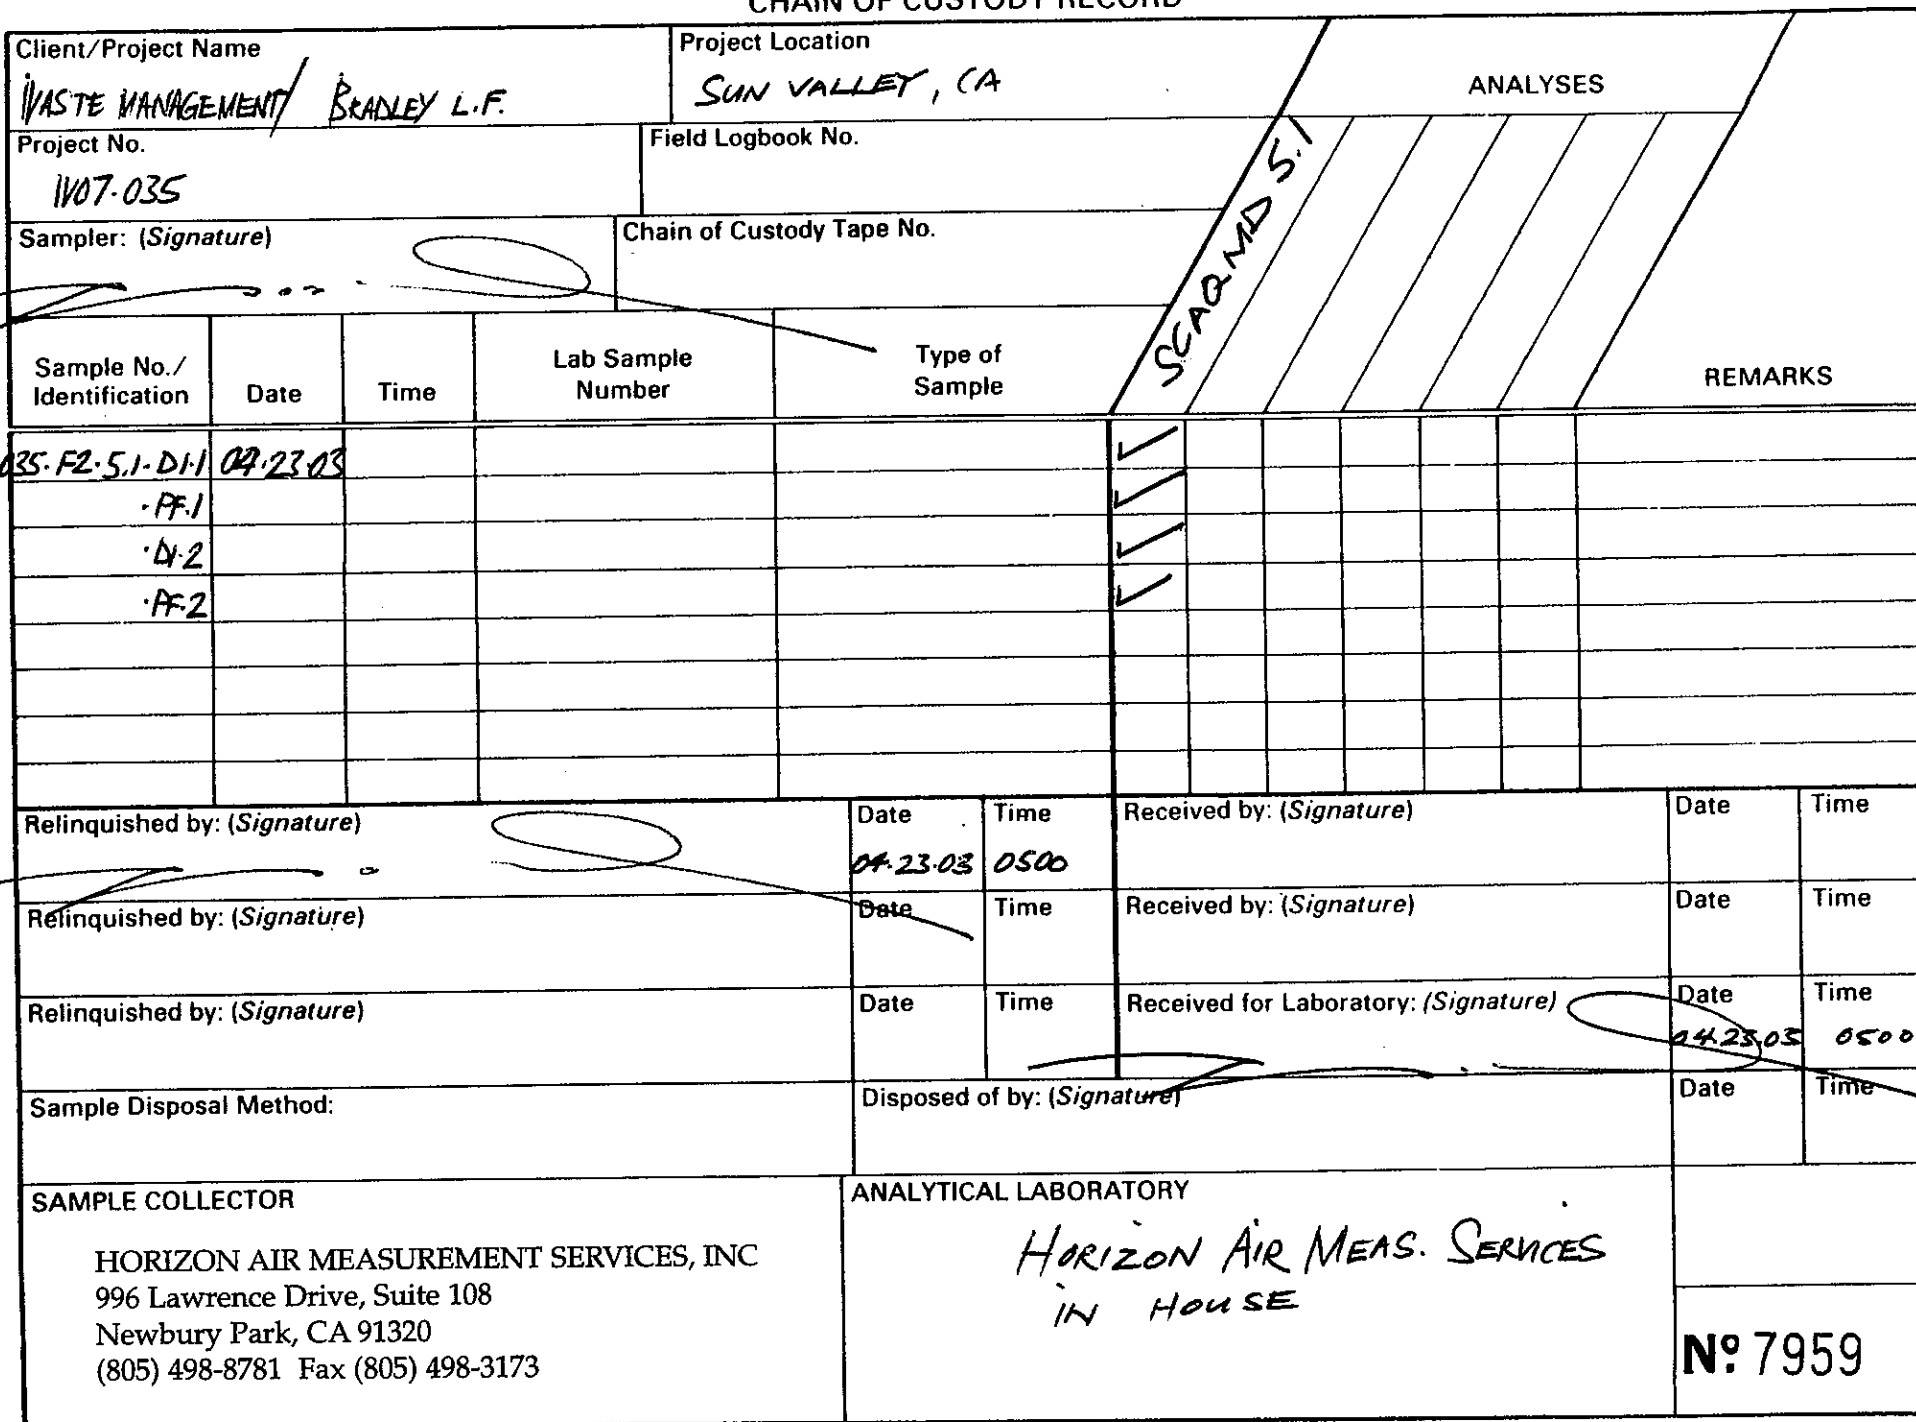 CHAIN OF CUSTODY RECORD
Client/Project Name
WASTE MANAGEMENT/ BRADLEY L.F.
Project Location
SUN VALLEY, CA
ANALYSES
Project No.
W07-035
Field Logbook No.
Sampler: (Signature)
Chain of Custody Tape No.
SCAQMD 5.1
Sample No./
Identification
Date
Time
Lab Sample
Number
Type of
Sample
REMARKS
035.F2.5.1-DI.1 04.23.03 ✓
.PF.1 ✓
.DI.2 ✓
.PF.2 ✓
Relinquished by: (Signature)
Date
04.23.03
Time
0500
Received by: (Signature)
Date
Time
Relinquished by: (Signature)
Date
Time
Received by: (Signature)
Date
Time
Relinquished by: (Signature)
Date
Time
Received for Laboratory: (Signature)
Date
04.23.03
Time
0500
Sample Disposal Method:
Disposed of by: (Signature)
Date
Time
SAMPLE COLLECTOR
HORIZON AIR MEASUREMENT SERVICES, INC
996 Lawrence Drive, Suite 108
Newbury Park, CA 91320
(805) 498-8781 Fax (805) 498-3173
ANALYTICAL LABORATORY
HORIZON AIR MEAS. SERVICES
IN HOUSE
Nº 7959